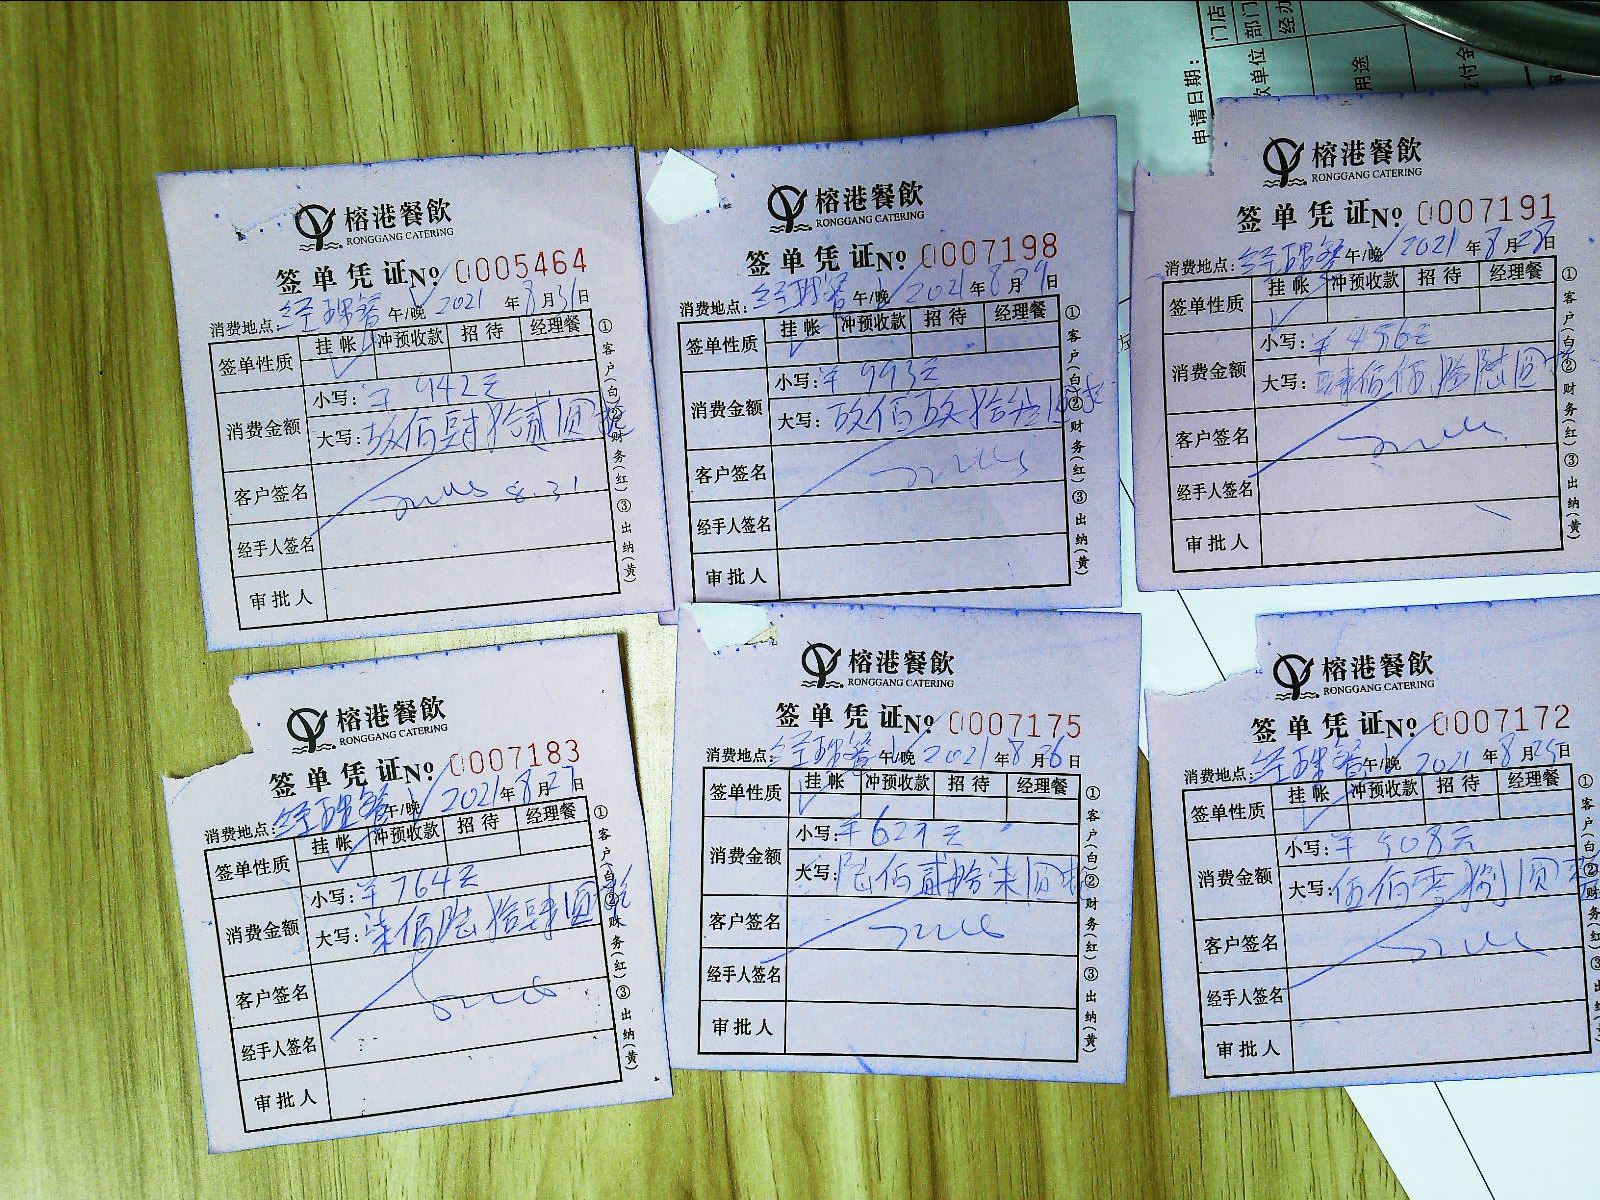 门店
部门
经办
申请日期：
款单位
用途
付金
榕港餐飲
RONGGANG CATERING
签单凭证№ 0005464
消费地点：经理餐 午/晚 2021年8月31日
签单性质 挂帐 冲预收款 招待 经理餐
消费金额 小写：￥942元
大写：玖佰肆拾贰圆整
客户签名 8.31
经手人签名
审批人
①客户(白)②财务(红)③出纳(黄)
榕港餐飲
RONGGANG CATERING
签单凭证№ 0007198
消费地点：经理餐 午/晚 2021年8月29日
签单性质 挂帐 冲预收款 招待 经理餐
消费金额 小写：￥993元
大写：玖佰玖拾叁圆整
客户签名
经手人签名
审批人
①客户(白)②财务(红)③出纳(黄)
榕港餐飲
RONGGANG CATERING
签单凭证№ 0007191
消费地点：经理餐 午/晚 2021年8月28日
签单性质 挂帐 冲预收款 招待 经理餐
消费金额 小写：￥456元
大写：肆佰伍拾陆圆
客户签名
经手人签名
审批人
①客户(白)②财务(红)③出纳(黄)
榕港餐飲
RONGGANG CATERING
签单凭证№ 0007183
消费地点：经理餐 午/晚 2021年8月27日
签单性质 挂帐 冲预收款 招待 经理餐
消费金额 小写：￥764元
大写：柒佰陆拾肆圆整
客户签名
经手人签名
审批人
①客户(白)②财务(红)③出纳(黄)
榕港餐飲
RONGGANG CATERING
签单凭证№ 0007175
消费地点：经理餐 午/晚 2021年8月26日
签单性质 挂帐 冲预收款 招待 经理餐
消费金额 小写：￥627元
大写：陆佰贰拾柒圆整
客户签名
经手人签名
审批人
①客户(白)②财务(红)③出纳(黄)
榕港餐飲
RONGGANG CATERING
签单凭证№ 0007172
消费地点：经理餐 午/晚 2021年8月25日
签单性质 挂帐 冲预收款 招待 经理餐
消费金额 小写：￥508元
大写：伍佰零捌圆
客户签名
经手人签名
审批人
①客户(白)②财务(红)③出纳